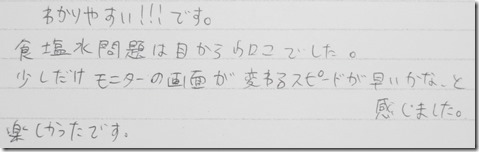 わかりやすい!!!です。
食塩水問題は目からウロコでした。
少しだけモニターの画面が変わるスピードが早いかな、と
感じました。
楽しかったです。